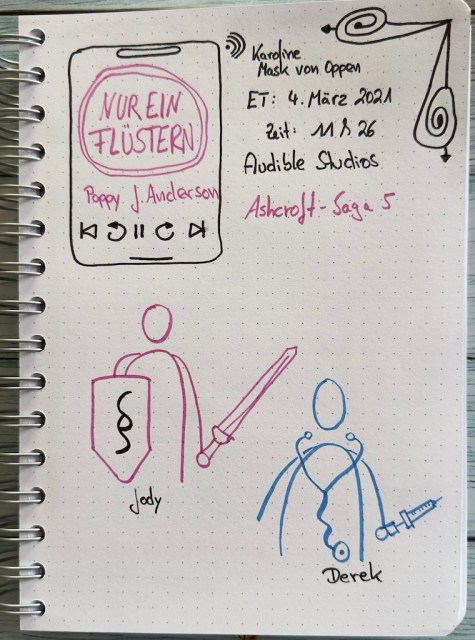 NUR EIN
FLÜSTERN
Poppy J. Anderson
Karoline
Mask von Oppen
ET: 4. März 2021
Zeit: 11 S 26
Audible Studios
Ashcroft-Saga 5
Jody
Derek